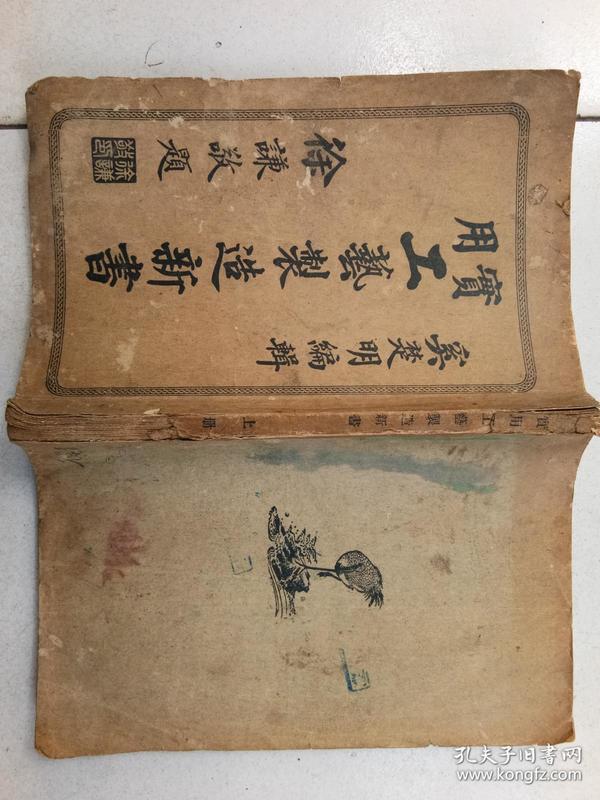 奚楚明編輯
實用
工藝製造新書
徐謙敬題
實用工藝製造新書 上冊
孔夫子旧书网
www.kongfz.com